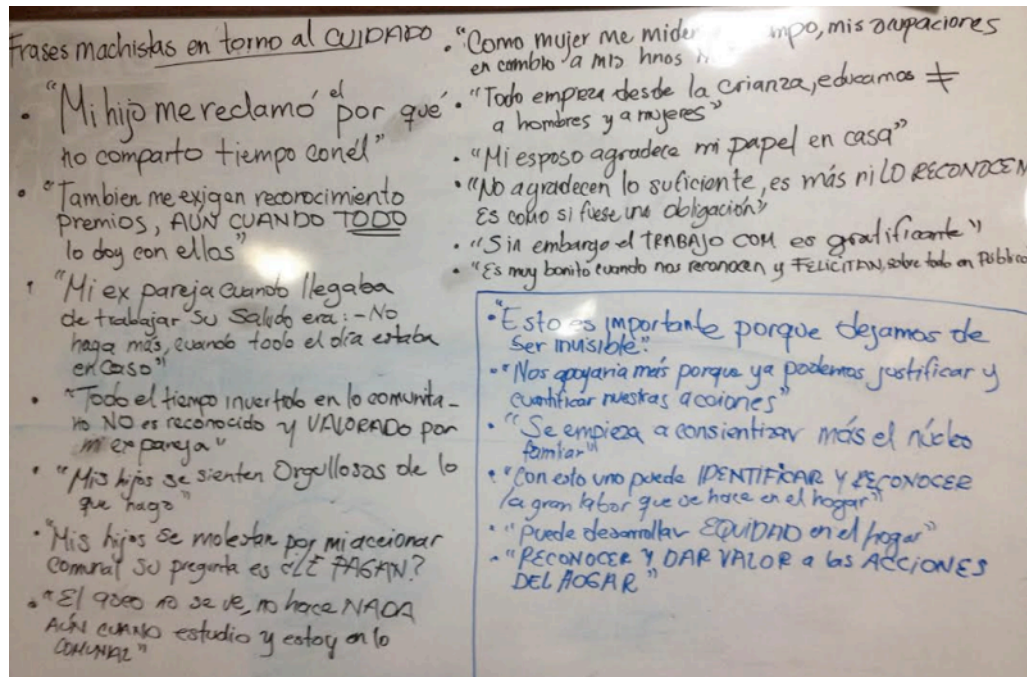 Frases machistas en torno al CUIDADO
• "Mi hijo me reclamó el por qué
no comparto tiempo con él"
• "Tambien me exigen reconocimiento
Premios, AUN CUANDO TODO
lo doy con ellos"
• "Mi ex pareja cuando llegaba
de trabajar su Saludo era: - No
haga más, cuando todo el día estaba
en casa"
• "Todo el tiempo invertido en lo comunita-
rio NO es reconocido y VALORADO por
mi ex pareja"
• "Mis hijos se sienten Orgullosos de lo
que hago"
• "Mis hijos se molestan por mi accionar
comunal su pregunta es ¿LE PAGAN?
• "El aseo no se ve, no hace NADA
AÚN CUANDO estudio y estoy en lo
COMUNAL"
• "Como mujer me miden mpo, mis ocupaciones
en cambio a mis hnos
• "Todo empieza desde la crianza, educamos ≠
a hombres y a mujeres"
• "Mi esposo agradece mi papel en casa"
• "No agradecen lo suficiente, es más ni LO RECONOCEN
Es como si fuese una obligación"
• "Sin embargo el TRABAJO COM es gratificante"
• "Es muy bonito cuando nos reconocen y FELICITAN, sobre todo en Público
• "Esto es importante porque dejamos de
ser invisible."
• "Nos apoyaria más porque ya podemos justificar y
cuantificar nuestras acciones"
• "Se empieza a consientizar más el núcleo
familiar"
• "Con esto uno puede IDENTIFICAR Y RECONOCER
la gran labor que se hace en el hogar"
• "Puede desarrollar EQUIDAD en el hogar"
• "RECONOCER Y DAR VALOR a las ACCIONES
DEL HOGAR"